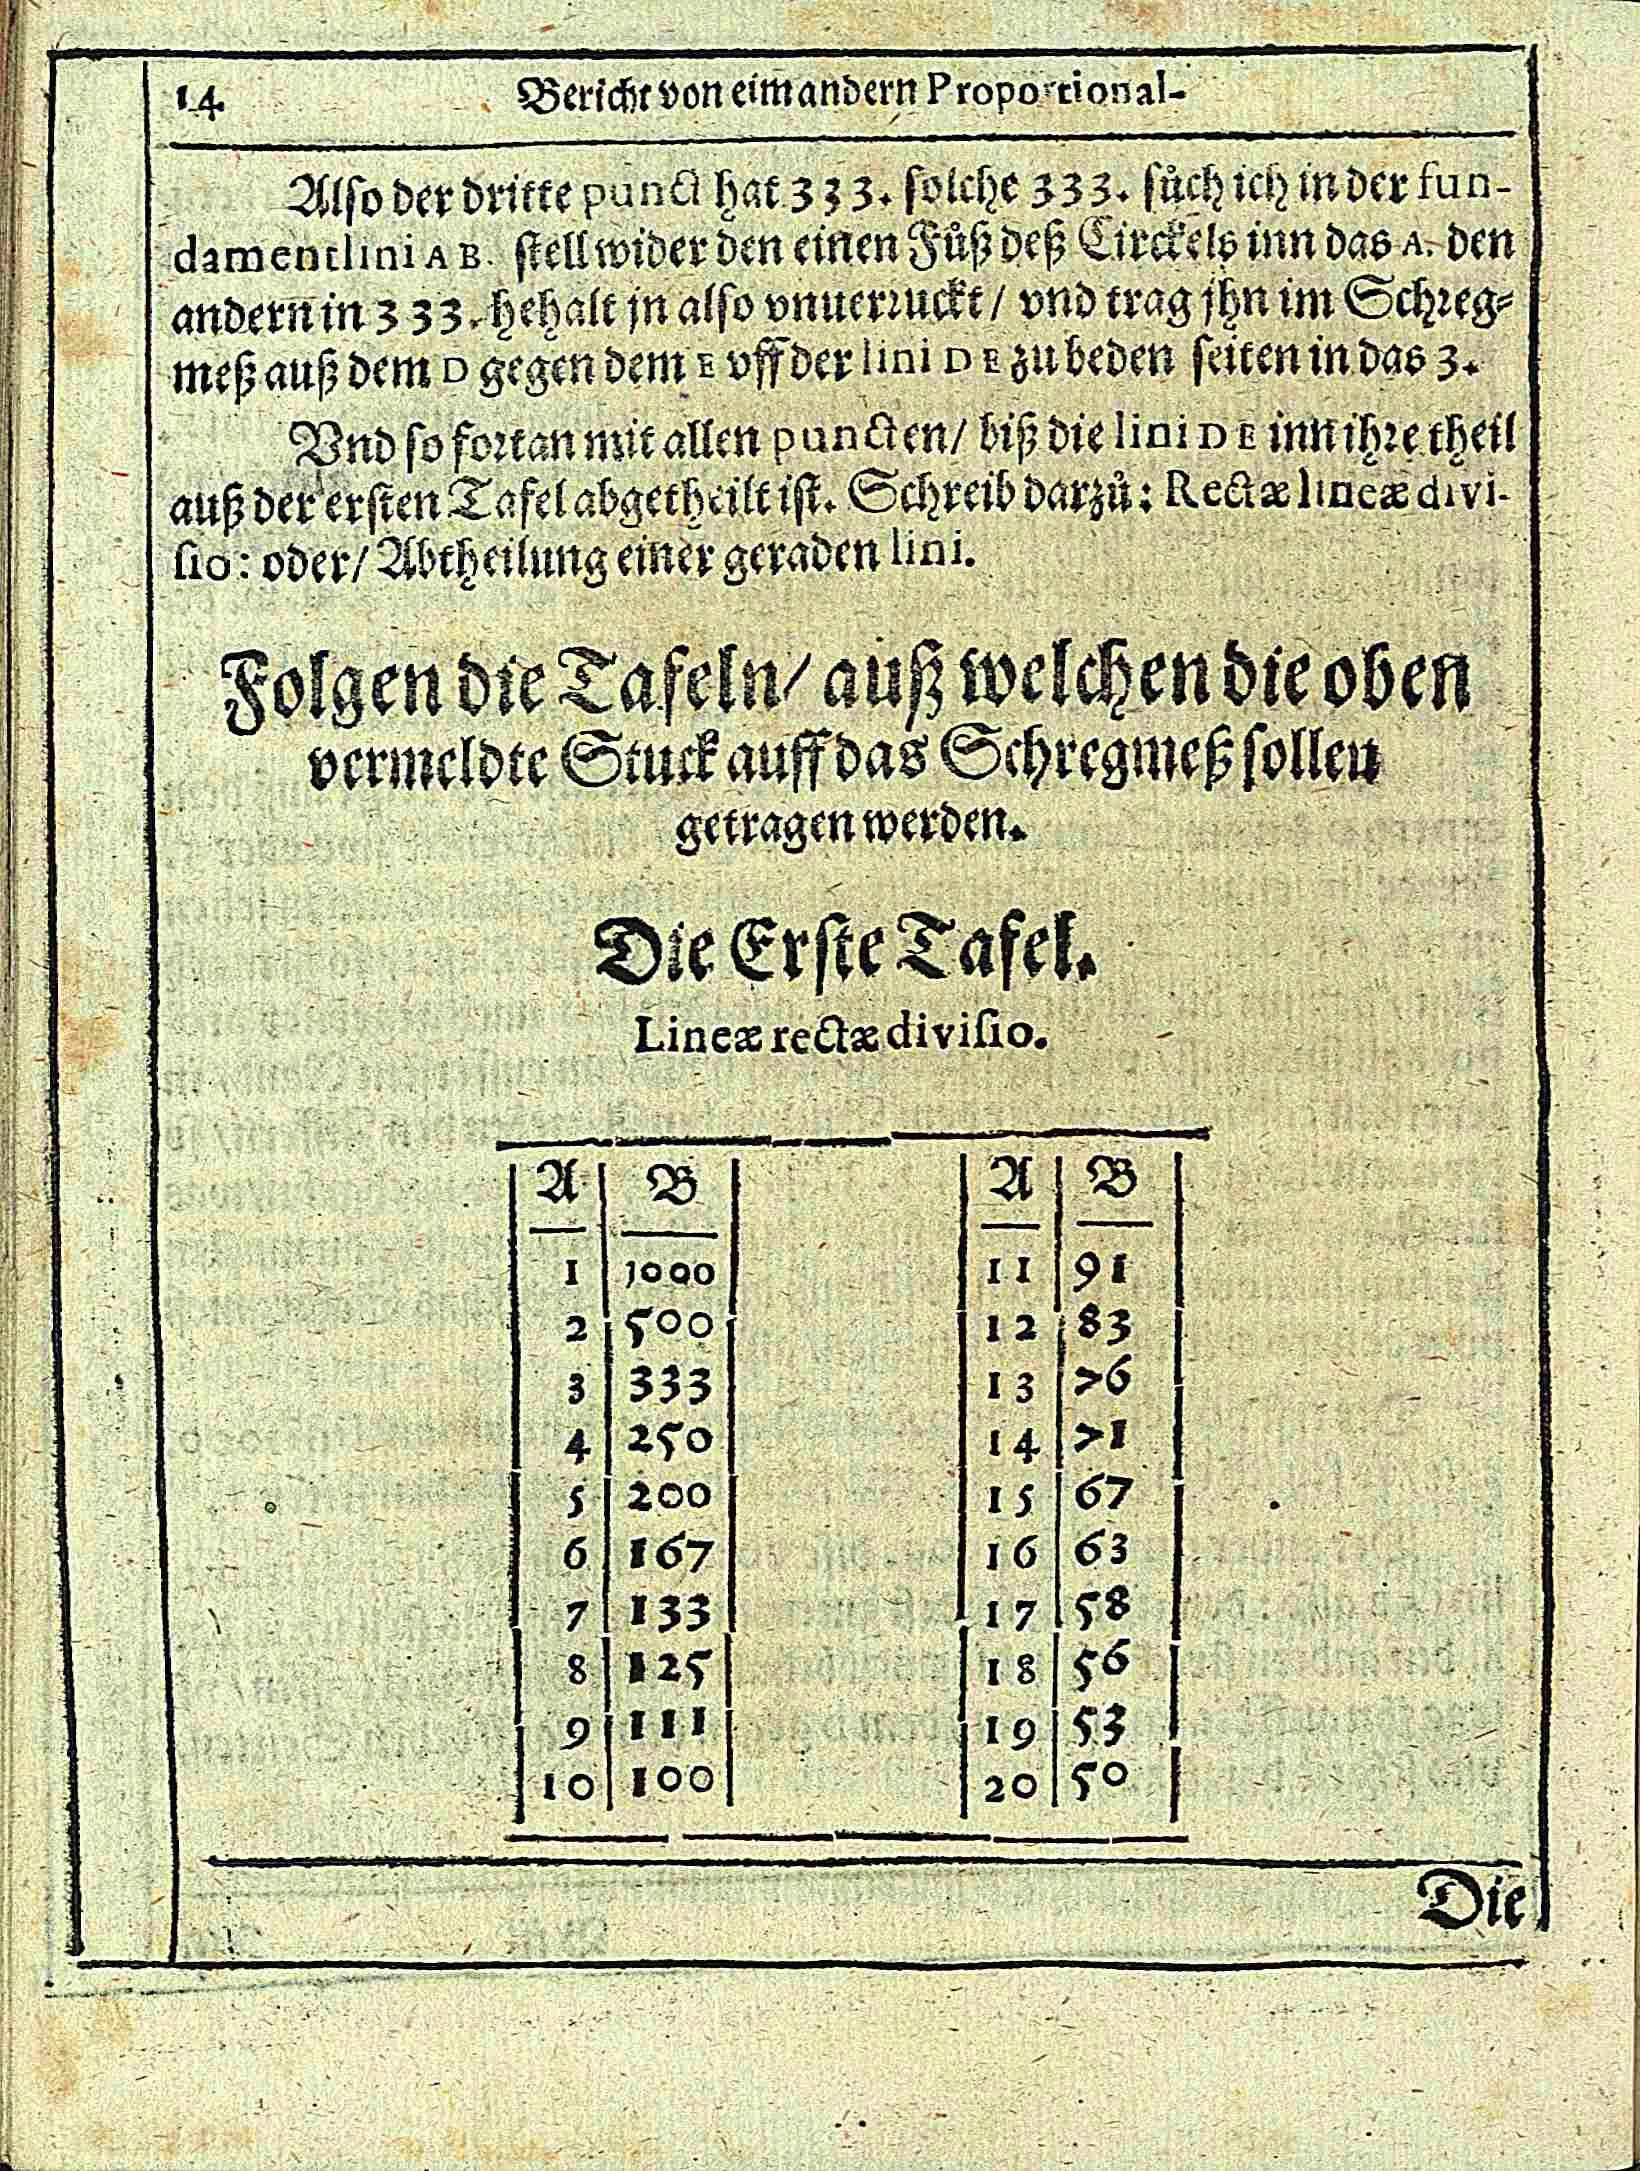 14. Bericht von eim andern Proportional-
Also der dritte punct hat 333. solche 333. sůch ich in der fun-
damentlini A B. stell wider den einen Fůß deß Circkels inn das A. den
andern in 333. hehalt jn also vnuerruckt / vnd trag jhn im Schreg-
meß auß dem D gegen dem E vff der lini D E zu beden seiten in das 3.
Vnd so fortan mit allen puncten / biß die lini D E inn ihre theil
auß der ersten Tafel abgetheilt ist. Schreib darzů: Rectæ lineæ divi-
sio: oder / Abtheilung einer geraden lini.
Folgen die Tafeln / auß welchen die oben
vermeldte Stuck auff das Schregmeß sollen
getragen werden.
Die Erste Tafel.
Lineæ rectæ divisio.
A B A B
1 1000 11 91
2 500 12 83
3 333 13 76
4 250 14 71
5 200 15 67
6 167 16 63
7 133 17 58
8 125 18 56
9 111 19 53
10 100 20 50
Die